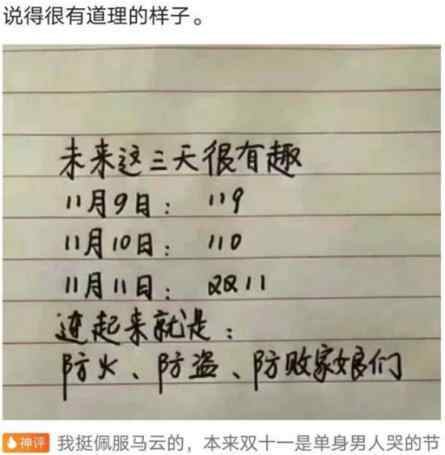 说得很有道理的样子。
未来这三天很有趣
11月9日： 119
11月10日： 110
11月11日： 双11
连起来就是：
防火、防盗、防败家娘们
神评 我挺佩服马云的，本来双十一是单身男人哭的节